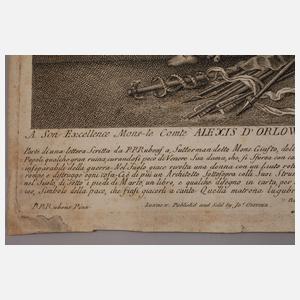 A Son Excellence Mons.le Comte ALEXIS D'ORLOW
Parte di una lettera Scritta da P.P. Rubens a, Sutterman dette Mons Giusto, dell
Popoli qualche gran ruina curandosi poco di Venere Sua dama, che si Sforza con ca
inseparabili della guerra Nel Suolo giace rivolta una donna con un liuto rotto
rompe e distrugge ogni cosa Cè di più un Architetto Sottosopra colli Suoi Strum
nel Suolo, di Sotto i piedi di Marte un libro, e qualche disegno in carta, per
us, Simbolo della pace, che fassi giacerli a canto Quella matrona lugubre
P. P. Rubens Pinx.
LONDON. Publish'd and Sold by Jo.